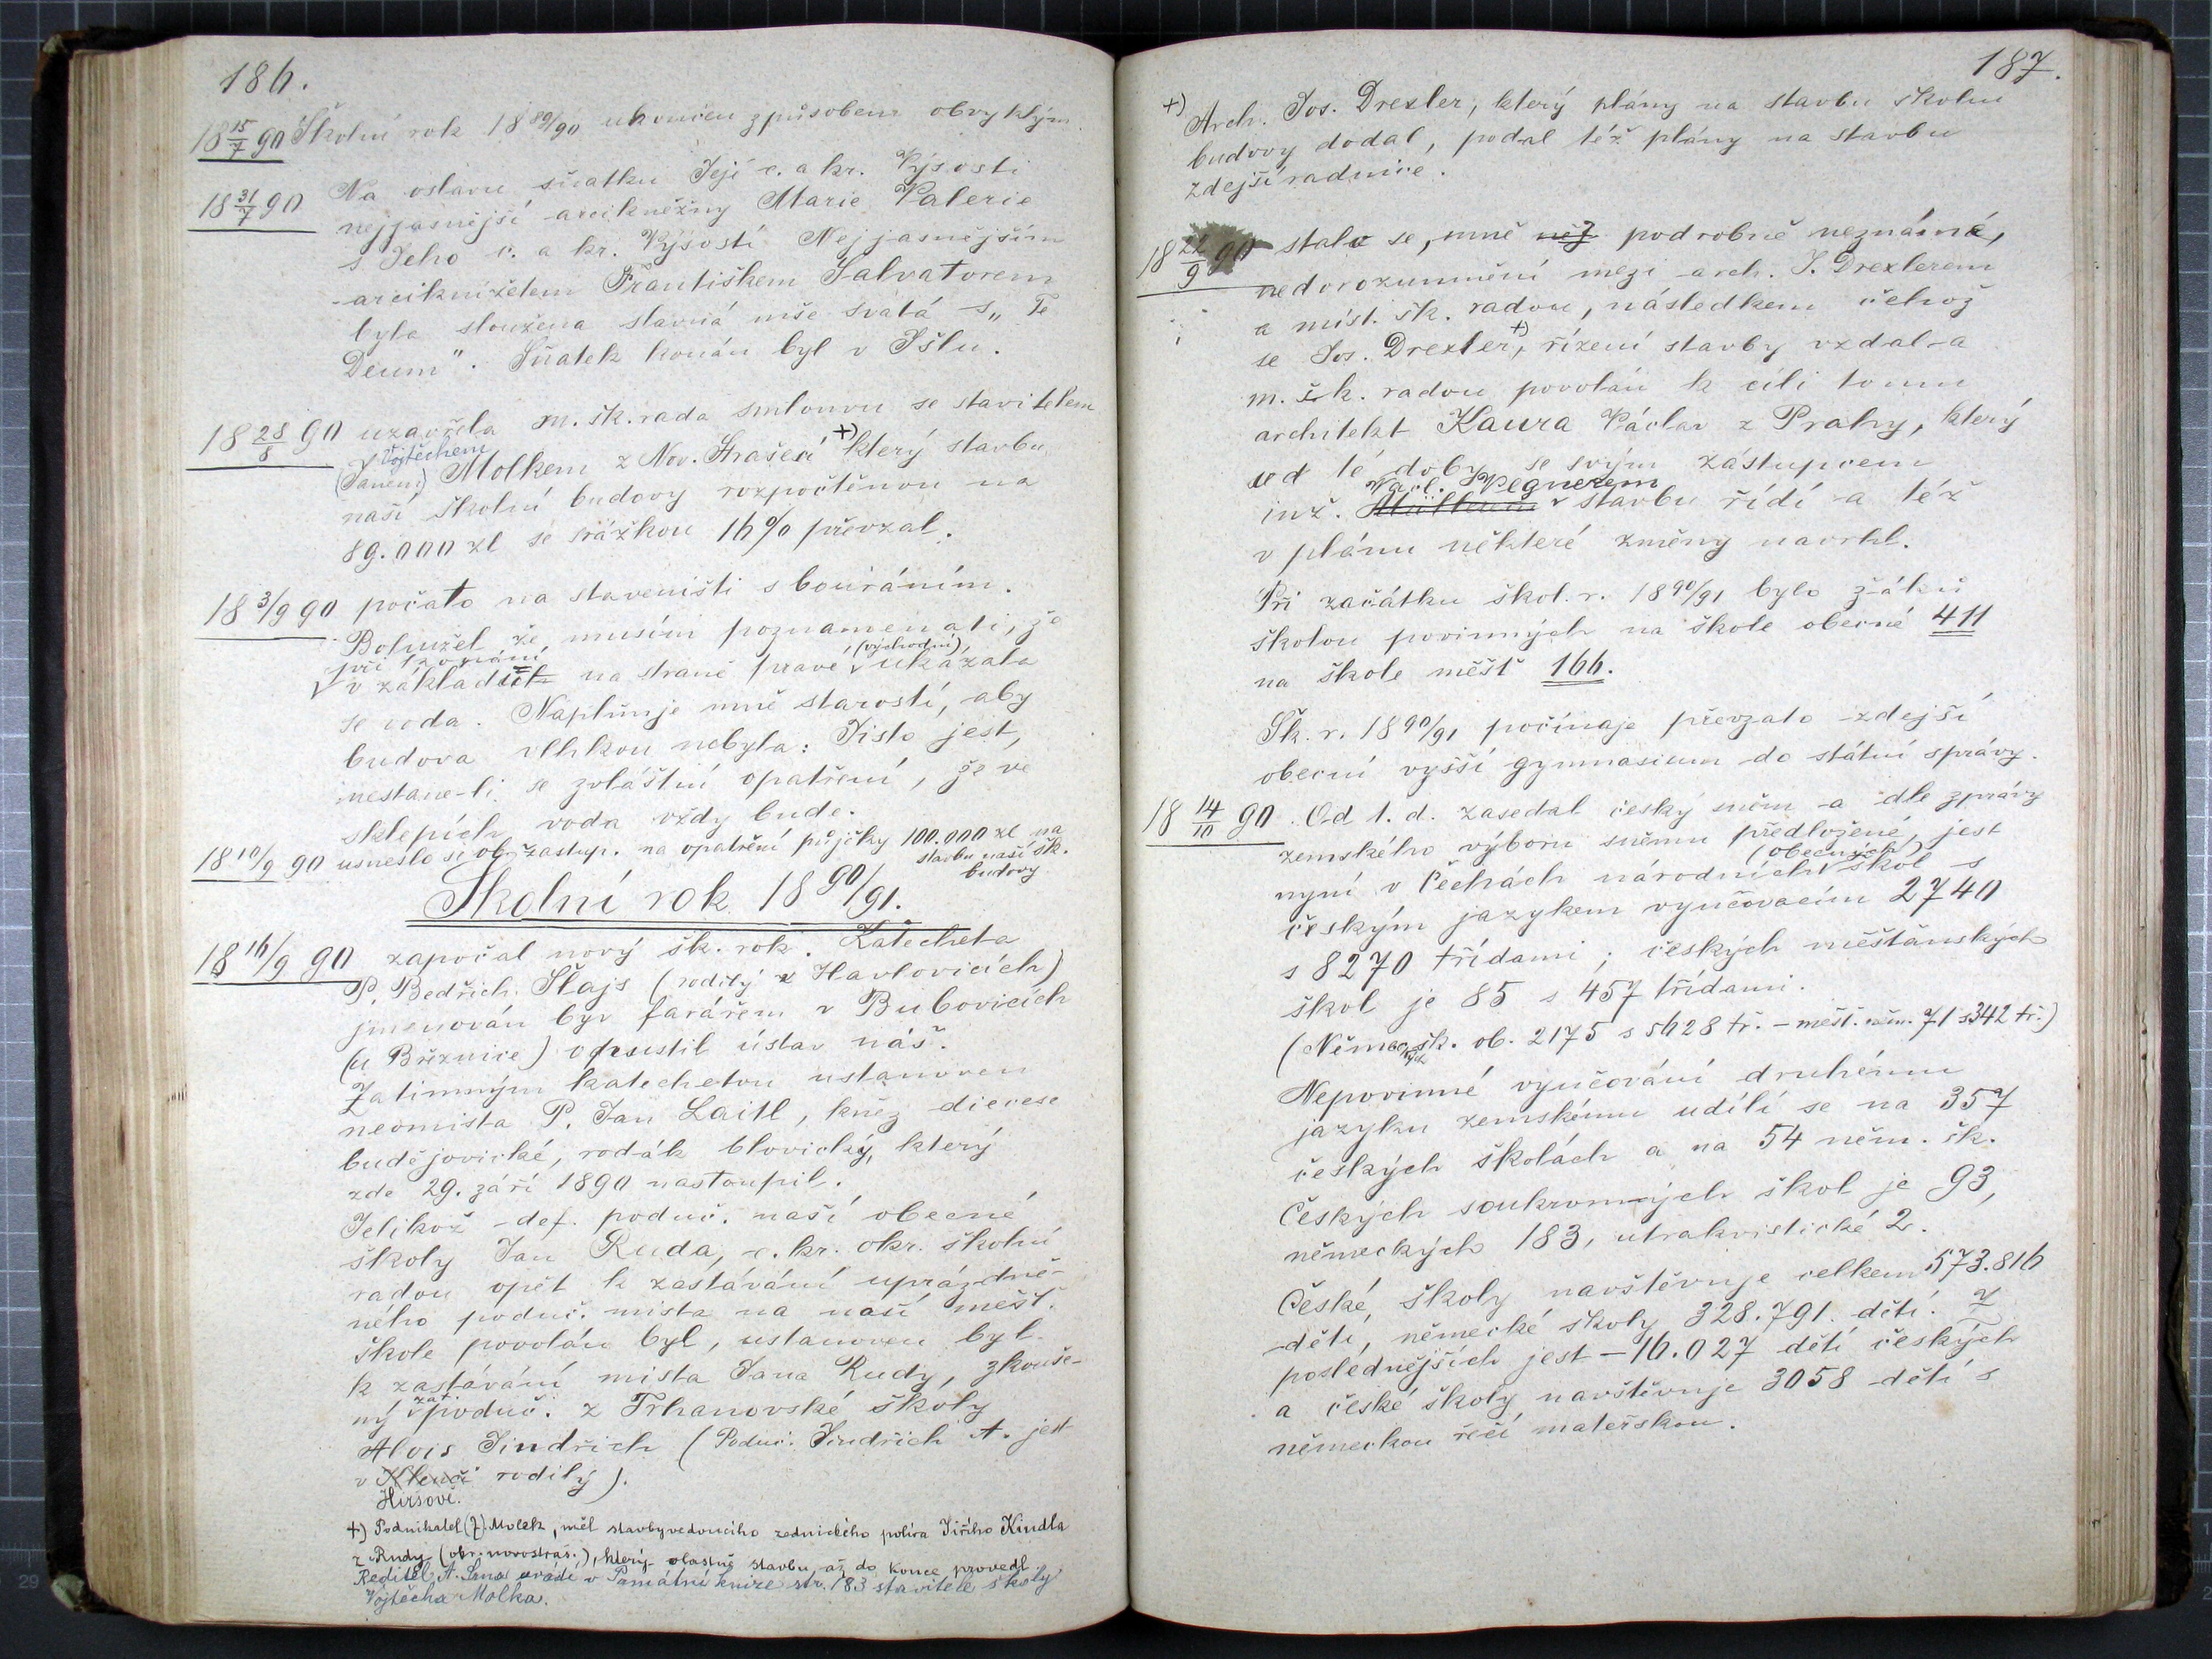 186.
18 15/7 90 Školní rok 18 89/90 ukončen způsobem obvyklým.
18 31/7 90 Na oslavu sňatku Její c. a kr. Výsosti
nejjasnější arcikněžny Marie Valerie
s Jeho c. a kr. Výsostí Nejjasnějším
arciknížetem Františkem Salvatorem
byla sloužena slavná mše svatá s „Te
Deum". Sňatek konán byl v Išlu.
18 28/8 90 uzavřela m. šk. rada smlouvu se stavitelem
Vojtěchem
(Janem) Molkem z Nov. Strašecí +) který stavbu
naší školní budovy rozpočtěnou na
89.000 zl se srážkou 16% převzal.
18 3/9 90 počato na staveništi s bouráním.
Bohužel že musím poznamenati, že
při kopání (východní)
v základ na straně pravé ukázala
se voda. Naplňuje mně starostí, aby
budova vlhkou nebyla: Jisto jest,
nestane-li se zvláštní opatření, že ve
sklepích voda vždy bude.
18 10/9 90 usneslo se ob. zastup. na opatření půjčky 100.000 zl na
stavbu naší šk.
budovy
Školní rok 18 90/91.
18 16/9 90 započal nový šk. rok. Katecheta
P. Bedřich Šlajs (rodilý z Havlovicích)
jmenován byv farářem v Bubovicích
(u Březnice) opustil ústav náš.
Zatimným katechetou ustanoven
neomista P. Jan Laitl, kněz diecese
budějovické, rodák blovický, který
zde 29. září 1890 nastoupil.
Jelikož def. poduč. naší obecné
školy Jan Ruda, c. kr. okr. školní
radou opět k zastávání uprázdně-
ného poduč. místa na naší měšť.
škole povolán byl, ustanoven byl
k zastávání místa Jana Rudy, zkouše-
ný zat. poduč. z Trhanovské školy
Alois Jindřich (Poduč. Jindřich A. jest
v Klenčí rodilý).
Hiršově.
+) Podnikatel (J). Molek, měl stavbyvedoucího zednického políra Jiřího Kindla
z Rudy (okr. novostraš.), který vlastně stavbu až do konce provedl.
Ředitel A. Srna uvádí v Pamětní knize str. 183 stavitele školy
Vojtěcha Molka.
187.
+) Arch. Jos. Drexler, který plány na stavbu školní
budovy dodal, podal též plány na stavbu
zdejší radnice.
18 22/9 90 stalo se, mně něj podrobně neznámé,
nedorozumnění mezi arch. J. Drexlerem
a míst. šk. radou, následkem čehož
se Jos. Drexler +), řízení stavby vzdal a
m. šk. radou povolán k cíli tomu
architekt Kaura Václav z Prahy, který
od té doby se svým zástupcem
Václ. Wegnerem
inž. Müllerem stavbu řídí a též
v plánu některé změny navrhl.
Při začátku škol. r. 18 90/91 bylo žáků
školou povinných na škole obecné 411
na škole měšť 166.
Šk. r. 18 90/91 počínaje převzato zdejší
obecní vyšší gymnasium do státní správy.
18 14/10 90. Od 1. d. zasedal český sněm a dle zprávy
zemského výboru sněmu předložené, jest
(obecných)
nyní v Čechách národních škol s
českým jazykem vyučovacím 2740
s 8270 třídami; českých měšťanských
škol je 85 s 457 třídami.
(Německých šk. ob. 2175 s 5628 tř. – měšť. něm. 71 s 342 tř.)
Nepovinné vyučování druhému
jazyku zemskému udílí se na 357
českých školách a na 54 něm. šk.
Českých soukromných škol je 93,
německých 183, utrakvistické 2.
České školy navštěvuje celkem 573.816
dětí, německé školy 328.791 dětí. Z
poslednějších jest – 16.027 dětí českých
a české školy navštěvuje 3058 dětí s
německou řečí mateřskou.